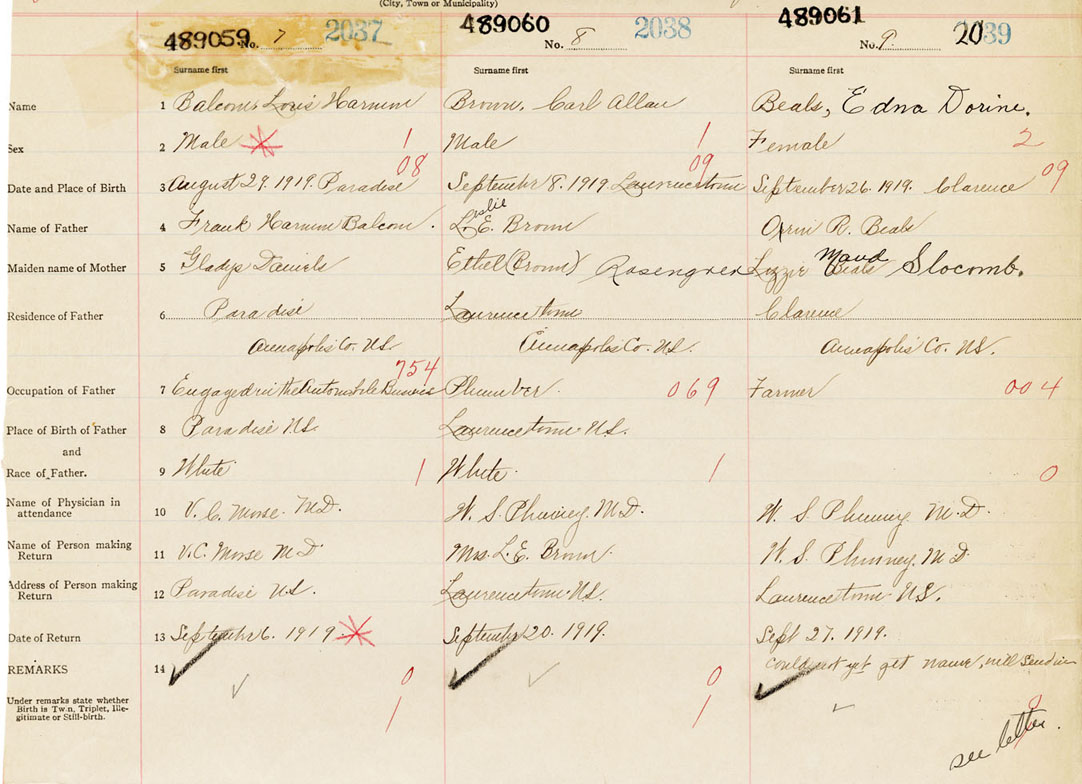 (City, Town or Municipality)
489059 No. 7 2037 489060 No. 8 2038 489061 No. 9. 2039
Surname first Surname first Surname first
Name 1 Balcom, Louis Harnum Brown, Carl Allan Beals, Edna Dorine.
Sex 2 Male 1 Male 1 Female 2
08 09 09
Date and Place of Birth 3 August 29. 1919. Paradise September 8. 1919. Lawrencetown September 26. 1919. Clarence
Leslie
Name of Father 4 Frank Harnum Balcom. L. E. Brown Orin R. Beals
Maud
Maiden name of Mother 5 Gladys Daniels Ethel (Brown) Rosengren Lizzie Beals Slocomb.
Residence of Father 6 Paradise Lawrencetown Clarence
Annapolis Co. N.S. Annapolis Co. N.S. Annapolis Co. N.S.
754
Occupation of Father 7 Engaged in the Automobile Business Plumber. 069 Farmer 004
Place of Birth of Father 8 Paradise N.S. Lawrencetown N.S.
and
Race of Father. 9 White 1 White 1 0
Name of Physician in
attendance 10 V. C. Morse. M.D. W. S. Phinney. M.D. W. S. Phinney M.D.
Name of Person making
Return 11 V. C. Morse M D Mrs. L. E. Brown. W. S. Phinney. M D
Address of Person making
Return 12 Paradise N.S. Lawrencetown N.S. Lawrencetown N.S.
Date of Return 13 September 6. 1919. September 20. 1919. Sept 27. 1919.
REMARKS 14 0 0 could not yet get name, will send in
Under remarks state whether
Birth is Twin, Triplet, Ille-
gitimate or Still-birth. 1 1
see letter.